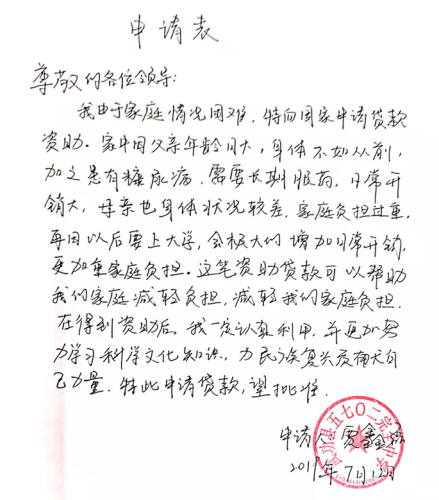 申请表
尊敬的各位领导:
我由于家庭情况困难,特向国家申请贷款
资助。家中因父亲年龄口大,身体不如从前,
加之患有糖尿病,需要长期服药,日常开
销大,母亲也身体状况较差,家庭负担过重,
再因以后要上大学,会极大的增加日常开销,
更加重家庭负担。这笔资助贷款可以帮助
我们家庭减轻负担,减轻我们家庭负担,
在得到资助后,我一定认真利用,并更加努
力学习科学文化知识,为民族复兴贡献大自
己力量。特此申请贷款,望批准。
申请人 贾鑫
2019年7月12日
武功县五七〇二完全中学